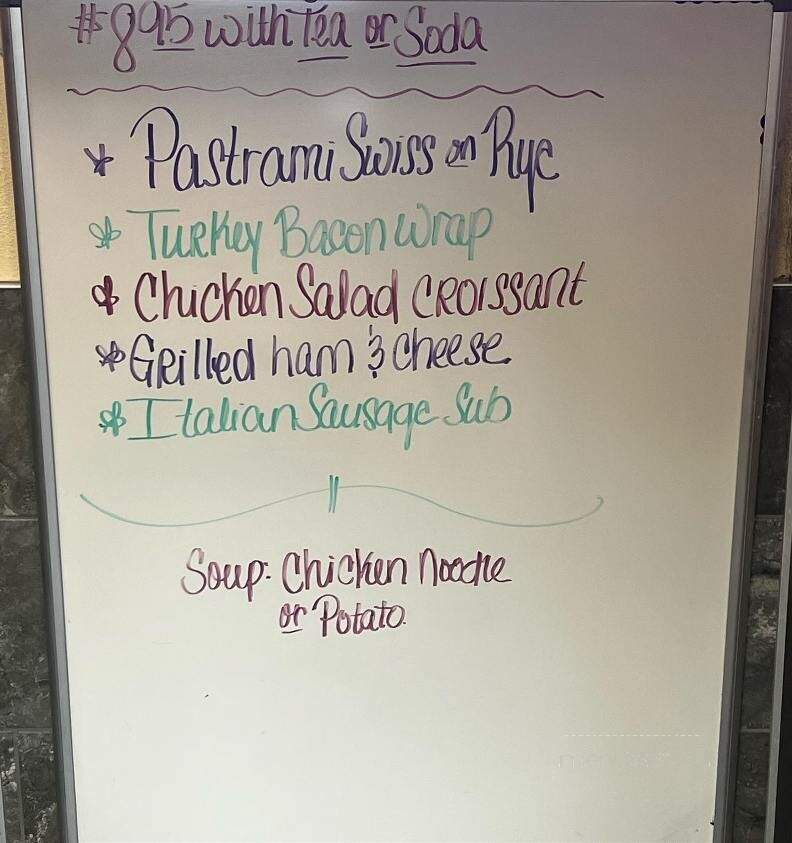 #895 with Tea or Soda
* Pastrami Swiss on Rye
* Turkey Bacon Wrap
* Chicken Salad Croissant
* Grilled ham & cheese
* Italian Sausage Sub
Soup: Chicken Noodle
or Potato.